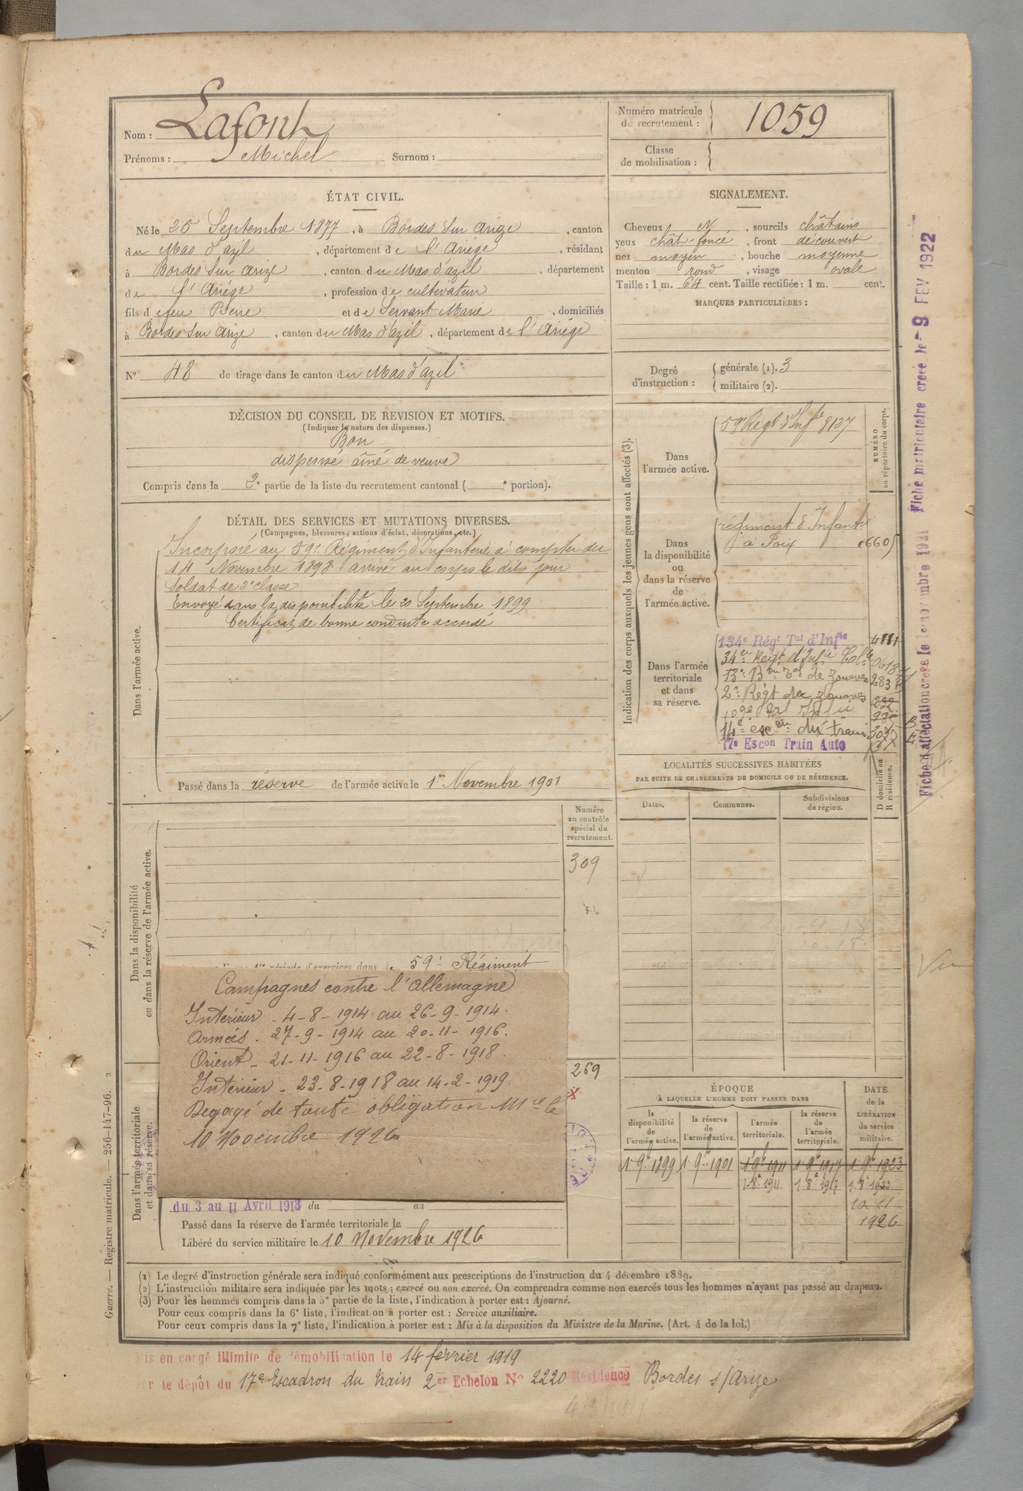 Nom : Lafont
Prénoms : Michel Surnom :
Numéro matricule du recrutement : 1059
Classe de mobilisation :
ÉTAT CIVIL.
Né le 25 Septembre 1877, à Bordes sur Arize, canton
du Mas d'azil, département de l'Ariège, résidant
à Bordes sur Arize, canton du Mas d'azil, département
de l'Ariège, profession de cultivateur
fils de feu Pierre et de Servant Marie, domiciliés
à Bordes sur Arize, canton du Mas d'azil, département de l'Ariège
N° 48 de tirage dans le canton du Mas d'azil
SIGNALEMENT.
Cheveux N, sourcils châtains
yeux chât-foncé, front découvert
nez moyen, bouche moyenne
menton rond, visage ovale
Taille : 1 m. 64 cent. Taille rectifiée : 1 m. cent.
MARQUES PARTICULIÈRES :
Degré d'instruction : générale (1). 3
militaire (2).
DÉCISION DU CONSEIL DE REVISION ET MOTIFS.
(Indiquer la nature des dispenses.)
Bon
dispensé aîné de veuve
Compris dans la 2e partie de la liste du recrutement cantonal ( e portion).
DÉTAIL DES SERVICES ET MUTATIONS DIVERSES.
(Campagnes, blessures, actions d'éclat, décorations, etc.)
Dans l'armée active.
Incorporé au 59e Régiment d'Infanterie à compter du
14 Novembre 1898 arrivé au corps le dit jour
soldat de 2e classe
Envoyé dans la disponibilité le 20 Septembre 1899
Certificat de bonne conduite accordé
Passé dans la réserve de l'armée active le 1er Novembre 1901
Indication des corps auxquels les jeunes gens sont affectés (3).
NUMÉRO au répertoire du corps.
Dans l'armée active.
59e Régt d'Infie 8127
Dans la disponibilité ou dans la réserve de l'armée active.
régiment d'Infant
à Foix 6605
Dans l'armée territoriale et dans sa réserve.
134e Régt Tal d'Infie 4111
34e Régt d'Infie Cole
13e Bon Tal de Zouaves
2e Régt de Zouaves
14e escon du train
17e Escon Train Auto
Fiche matriculaire créée le - 9 FEV 1922
LOCALITÉS SUCCESSIVES HABITÉES
PAR SUITE DE CHANGEMENTS DE DOMICILE OU DE RÉSIDENCE.
Dates. Communes. Subdivisions de région. D domicile ou R résidence.
Dans la disponibilité ou dans la réserve de l'armée active.
Numéro au contrôle spécial du recrutement.
309
59e Régiment
Campagnes contre l'Allemagne
Intérieur - 4-8-1914 au 26-9-1914.
Armées - 27-9-1914 au 20-11-1916.
Orient - 21-11-1916 au 22-8-1918.
Intérieur - 23-8-1918 au 14-2-1919
Dégagé de toute obligation Mre le
10 Novembre 1926
269
Dans l'armée territoriale et dans sa réserve.
du 3 au 11 Avril 1913 du au
Passé dans la réserve de l'armée territoriale le
Libéré du service militaire le 10 Novembre 1926
ÉPOQUE
À LAQUELLE L'HOMME DOIT PASSER DANS
la disponibilité de l'armée active. la réserve de l'armée active. l'armée territoriale. la réserve de l'armée territoriale.
DATE de la LIBÉRATION du service militaire.
1 9e 1899 1 9e 1901 1 9e 1911 1 9e 1917 1 9e 1923
1-8e-1911 1-8e-1917
1926
Guerre. — Registre matricule. — 256-147-96.
(1) Le degré d'instruction générale sera indiqué conformément aux prescriptions de l'instruction du 4 décembre 1889.
(2) L'instruction militaire sera indiquée par les mots : exercé ou non exercé. On comprendra comme non exercés tous les hommes n'ayant pas passé au drapeau.
(3) Pour les hommes compris dans la 5e partie de la liste, l'indication à porter est : Ajourné.
Pour ceux compris dans la 6e liste, l'indication à porter est : Service auxiliaire.
Pour ceux compris dans la 7e liste, l'indication à porter est : Mis à la disposition du Ministre de la Marine. (Art. 4 de la loi.)
Mis en congé illimité de démobilisation le 14 février 1919
le dépôt du 17e Escadron du train 2er Echelon N° 2220 Résidence Bordes s/Arize